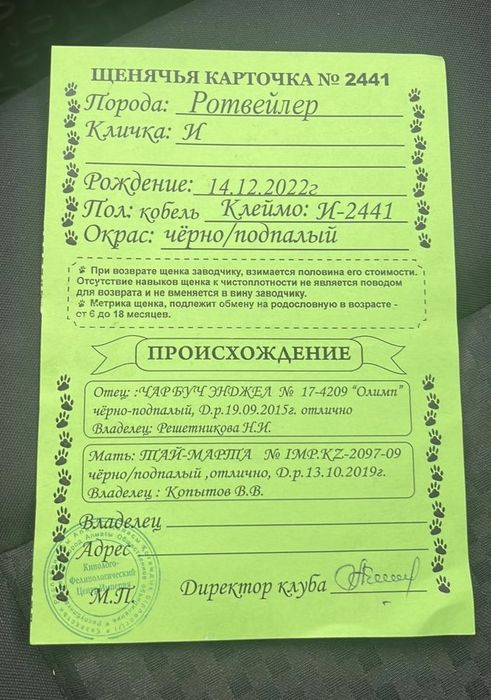 ЩЕНЯЧЬЯ КАРТОЧКА № 2441
Порода: Ротвейлер
Кличка: И
Рождение: 14.12.2022г
Пол: кобель Клеймо: И-2441
Окрас: чёрно/подпалый
При возврате щенка заводчику, взимается половина его стоимости.
Отсутствие навыков щенка к чистоплотности не является поводом
для возврата и не вменяется в вину заводчику.
Метрика щенка, подлежит обмену на родословную в возрасте -
от 6 до 18 месяцев.
ПРОИСХОЖДЕНИЕ
Отец: :ЧАР БУЧ ЭНДЖЕЛ № 17-4209 "Олимп"
чёрно-подпалый, Д.р.19.09.2015г. отлично
Владелец: Решетникова Н.И.
Мать: ТАЙ-МАРТА № IMP.KZ-2097-09
чёрно/подпалый ,отлично, Д.р.13.10.2019г.
Владелец : Копытов В.В.
Владелец
Адрес
Кинолого-
Фелинологический
Центр Империя
М.П. Директор клуба